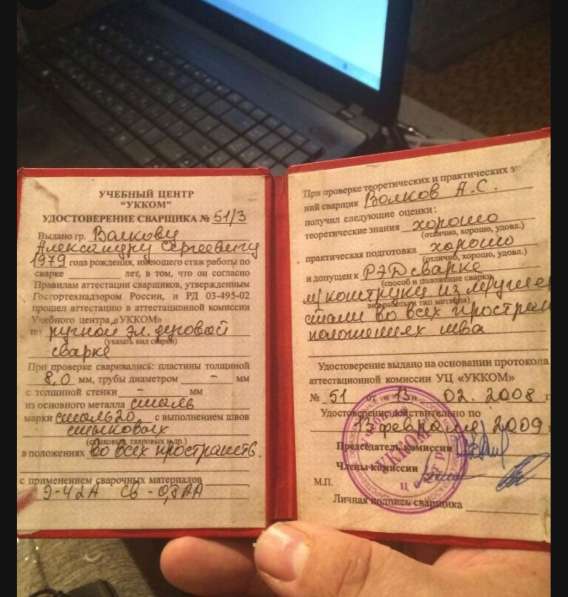 УЧЕБНЫЙ ЦЕНТР
"УККОМ"
УДОСТОВЕРЕНИЕ СВАРЩИКА № 51/3
Выдано гр. Валкову
Александру Сергеевичу
1979 года рождения, имеющего стаж работы по
сварке лет, в том, что он согласно
Правилам аттестации сварщиков, утвержденным
Госгортехнадзором России, и РД 03-495-02
прошел аттестацию в аттестационной комиссии
Учебного центра «УККОМ»
по ручной эл. дуговой
(указать вид сварки)
сварке
При проверке сваривались: пластины толщиной
8,0 мм, трубы диаметром - мм
с толщиной стенки - мм
из основного металла сталь
марки сталь20, с выполнением швов
стыковых
(стыковых, тавровых и др.)
в положениях во всех пространств.
с применением сварочных материалов
Э-42А Св-08АА
При проверке теоретических и практических
ний сварщик Волков А.С.
получил следующие оценки:
теоретические знания хорошо
(отлично, хорошо, удовл.)
практическая подготовка хорошо
(отлично, хорошо, удовл.)
и допущен к РЭД сварке
(способ и положение сварки,
м/конструкц. из
стали во всех простран
положениях шва
Удостоверение выдано на основании протокола
аттестационной комиссии УЦ «УККОМ»
№ 51 от 13 02. 2008 г
Удостоверение действительно по
13 февраля 2009 г
Председатель комиссии
Члены комиссии
УККОМ
М.П.
Личная подпись сварщика